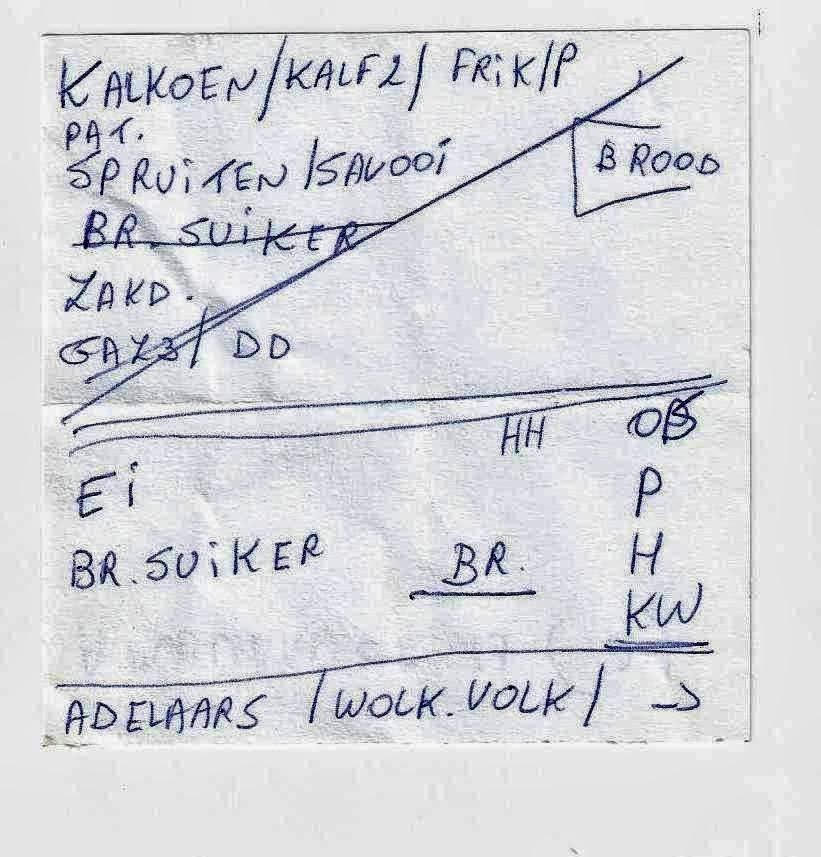 KALKOEN/KALF2/ FRiK/P
PAT.
SPRUiTEN/SAVOOi
BROOD
BR. SUiKER
ZAKD.
GAZ3/ DD
HH OB
Ei P
BR. SUiKER BR. H
KW
ADELAARS /WOLK.VOLK/ →